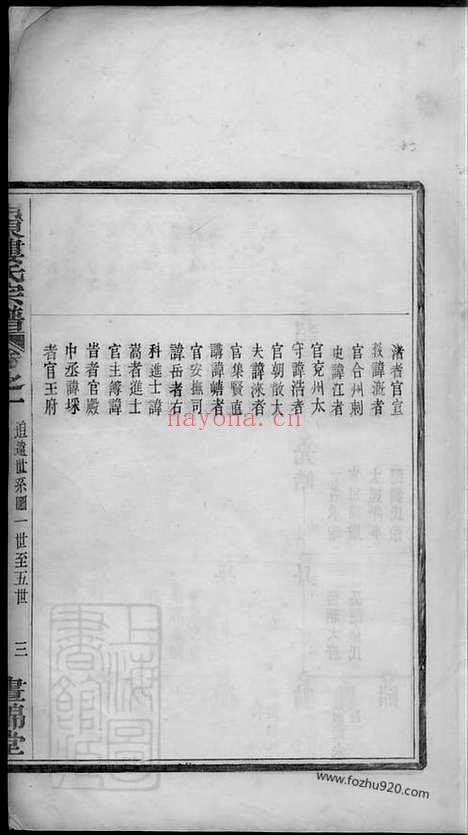 渚者官宣
教諱漄者
官合州刺
史諱江者
官兗州太
守諱浩者
官朝散大
夫諱淶者
官集賢直
講諱蟾者
官安撫司
諱岳者右
科進士諱
嵩者進士
官主簿諱
者官殿
中丞諱埰
者官王府
東婁氏宗譜 卷之一 追遠世系圖一世至五世 三 晝錦堂
上海圖書館藏
nayona.cn
www.fozhu920.com